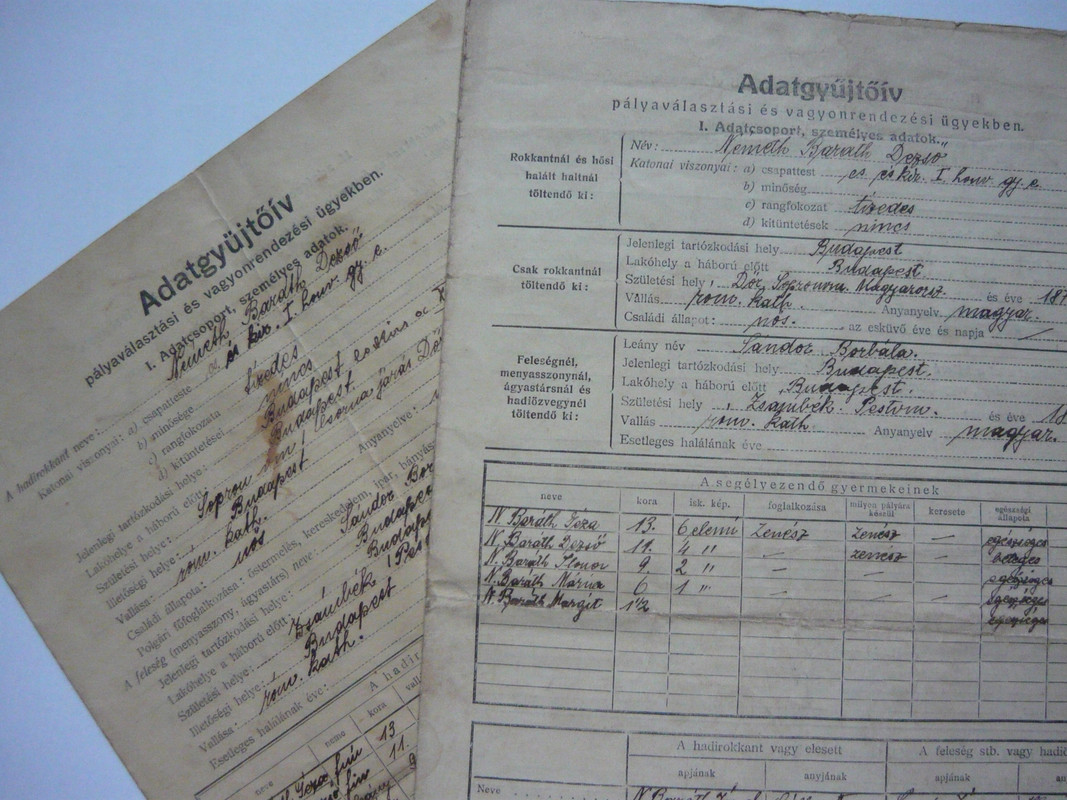 Adatgyűjtőív
pályaválasztási és vagyonrendezési ügyekben.
I. Adatcsoport, személyes adatok.
A hadirokkant neve: Németh Baráth Dezső
Katonai viszonyai: a) csapatteste és kir. I. honv. gy. e.
b) minősége
c) rangfokozata tizedes
d) kitüntetései nincs
Jelenlegi tartózkodási helye: Budapest
Lakóhelye a háború előtt: Budapest.
Születési helye: Sopron Csorna járás Dör
Illetőségi helye: Budapest
Vallása: rom. kath. Anyanyelve:
Családi állapota: nős
Polgári főfoglalkozása: őstermelés, kereskedelem, ipar, bányász
A feleség (menyasszony, ágyastárs) neve: Sándor Bor
Jelenlegi tartózkodási helye: Budapest
Lakóhelye a háború előtt: Budapes
Születési helye: Zsámbék (Pes
Illetőségi helye: Budapest
Vallása: rom. kath.
Esetleges halálának éve:
A hadir
neve kora
Géza fiú 13
fiú 11.
9
Adatgyűjtőív
pályaválasztási és vagyonrendezési ügyekben.
I. Adatcsoport, személyes adatok.
Rokkantnál és hősi
halált haltnál
töltendő ki:
Név: Németh Baráth Dezső
Katonai viszonyai: a) csapattest cs és kir. I. honv. gy. e.
b) minőség
c) rangfokozat tizedes
d) kitüntetések nincs
Csak rokkantnál
töltendő ki:
Jelenlegi tartózkodási hely Budapest
Lakóhely a háború előtt Budapest.
Születési hely Dör, Sopronm. Magyarorsz. és éve 187
Vallás rom. kath. Anyanyelv magyar.
Családi állapot: nős. az esküvő éve és napja —
Feleségnél,
menyasszonynál,
ágyastársnál és
hadiözvegynél
töltendő ki:
Leány név Sándor Borbála.
Jelenlegi tartózkodási hely Budapest.
Lakóhely a háború előtt Budapest.
Születési hely Zsámbék. Pestm. és éve 18
Vallás rom. kath. Anyanyelv magyar.
Esetleges halálának éve
A segélyezendő gyermekeinek
neve kora isk. kép. foglalkozása milyen pályára készül keresete egészségi állapota
N. Baráth Géza 13. 6 elemi Zenész Zenész — egészséges
N. Baráth Dezső 11. 4 " — zenész — beteges
N. Baráth 9 2 " — — — egészséges
N. Baráth Mária 6 1 " — — — egészséges
N. Baráth Margit 1½ egészséges
A hadirokkant vagy elesett A feleség stb. vagy hadiö
apjának anyjának apjának
Neve